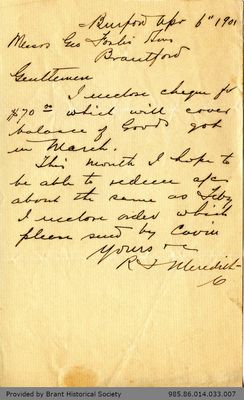 Burford Apr 6" 1901
Messrs Geo Foster Sons
Brantford
Gentlemen
I inclose cheque for
$70 00 which will cover
balance of Goods got
in March.
This month I hope to
be able to redeem a/c
about the same as Feby
I inclose order which
please send by
Yours
R J Meredith
Provided by Brant Historical Society
985.86.014.033.007